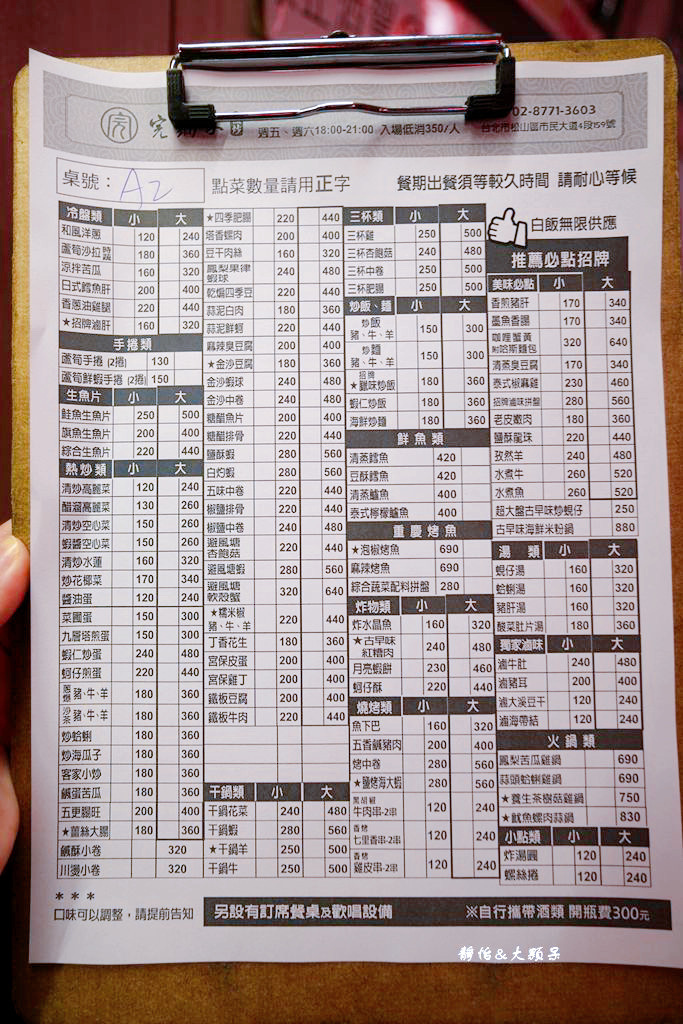 02-8771-3603
週五、週六18:00-21:00 入場低消350/人
台北市松山區市民大道4段159號
桌號：A2
點菜數量請用正字
餐期出餐須等較久時間 請耐心等候
冷盤類 小 大
和風洋蔥 120 240
蘆筍沙拉 時蔬 180 360
涼拌苦瓜 160 320
日式鱈魚肝 200 400
香蔥油雞腿 220 440
★招牌滷肝 160 320
手捲類
蘆筍手捲 (2捲) 130
蘆筍鮮蝦手捲 (2捲) 150
生魚片 小 大
鮭魚生魚片 250 500
旗魚生魚片 200 400
綜合生魚片 220 440
熱炒類 小 大
清炒高麗菜 120 240
醋溜高麗菜 130 260
清炒空心菜 150 260
蝦醬空心菜 150 260
清炒水蓮 160 320
炒花椰菜 170 340
醬油蛋 120 240
菜圃蛋 150 300
九層塔煎蛋 150 300
蝦仁炒蛋 240 480
蚵仔煎蛋 220 440
蔥爆 豬、牛、羊 180 360
沙茶 豬、牛、羊 180 360
炒蛤蜊 180 360
炒海瓜子 180 360
客家小炒 180 360
鹹蛋苦瓜 180 360
五更腸旺 200 400
★薑絲大腸 180 360
鹹酥小卷 320
川燙小卷 320
★四季肥腸 220 440
塔香螺肉 200 400
豆干肉絲 160 320
鳳梨果律蝦球 240 480
乾煸四季豆 220 440
蒜泥白肉 180 360
蒜泥鮮蚵 220 440
麻辣臭豆腐 200 400
★金沙豆腐 180 360
金沙蝦球 240 480
金沙中卷 240 480
糖醋魚片 200 400
糖醋排骨 220 440
鹽酥蝦 280 560
白灼蝦 280 560
五味中卷 220 440
椒鹽排骨 220 440
椒鹽中卷 240 480
避風塘杏鮑菇 220 440
避風塘蝦 280 560
避風塘軟殼蟹 320 640
★糯米椒 豬、牛、羊 220 440
丁香花生 180 360
宮保皮蛋 200 400
宮保雞丁 200 400
鐵板豆腐 200 400
鐵板牛肉 220 440
干鍋類 小 大
干鍋花菜 240 480
干鍋蝦 280 560
★干鍋羊 250 500
干鍋牛 250 500
三杯類 小 大
三杯雞 250 500
三杯杏鮑菇 240 480
三杯中卷 250 500
三杯肥腸 250 500
炒飯、麵 小 大
炒飯 豬、牛、羊 150 300
炒麵 豬、牛、羊 150 300
招牌★臘味炒飯 180 360
蝦仁炒飯 180 360
海鮮炒麵 180 360
鮮魚類
清蒸鱈魚 420
豆酥鱈魚 420
清蒸鱸魚 400
泰式檸檬鱸魚 400
重慶烤魚
★泡椒烤魚 690
麻辣烤魚 690
綜合蔬菜配料拼盤 280
炸物類 小 大
炸水晶魚 160 320
★古早味紅糟肉 240 480
月亮蝦餅 230 460
蚵仔酥 220 440
燒烤類 小 大
魚下巴 160 320
五香鹹豬肉 200 400
烤中卷 280 560
★鹽烤海大蝦 280 560
黑胡椒 牛肉串-2串 120 240
香烤 七里香串-2串 120 240
香烤 雞皮串-2串 120 240
白飯無限供應
推薦必點招牌
美味必點 小 大
香煎豬肝 170 340
墨魚香腸 170 340
咖哩蟹黃 附哈斯麵包 320 640
清蒸臭豆腐 170 340
泰式椒麻雞 230 460
招牌滷味拼盤 280 560
老皮嫩肉 180 360
鹽酥龍珠 220 440
孜然羊 240 480
水煮牛 260 520
水煮魚 260 520
超大盤古早味炒蜆仔 250
古早味海鮮米粉鍋 880
湯類 小 大
蜆仔湯 160 320
蛤蜊湯 160 320
豬肝湯 160 320
酸菜肚片湯 180 360
獨家滷味 小 大
滷牛肚 240 480
滷豬耳 200 400
滷大溪豆干 120 240
滷海帶結 120 240
火鍋類
鳳梨苦瓜雞鍋 690
蒜頭蛤蜊雞鍋 690
★養生茶樹菇雞鍋 750
★魷魚螺肉蒜鍋 830
小點類 小 大
炸湯圓 120 240
螺絲捲 120 240
＊＊＊
口味可以調整，請提前告知
另設有訂席餐桌及歡唱設備
※自行攜帶酒類 開瓶費300元
靜怡&大顆呆